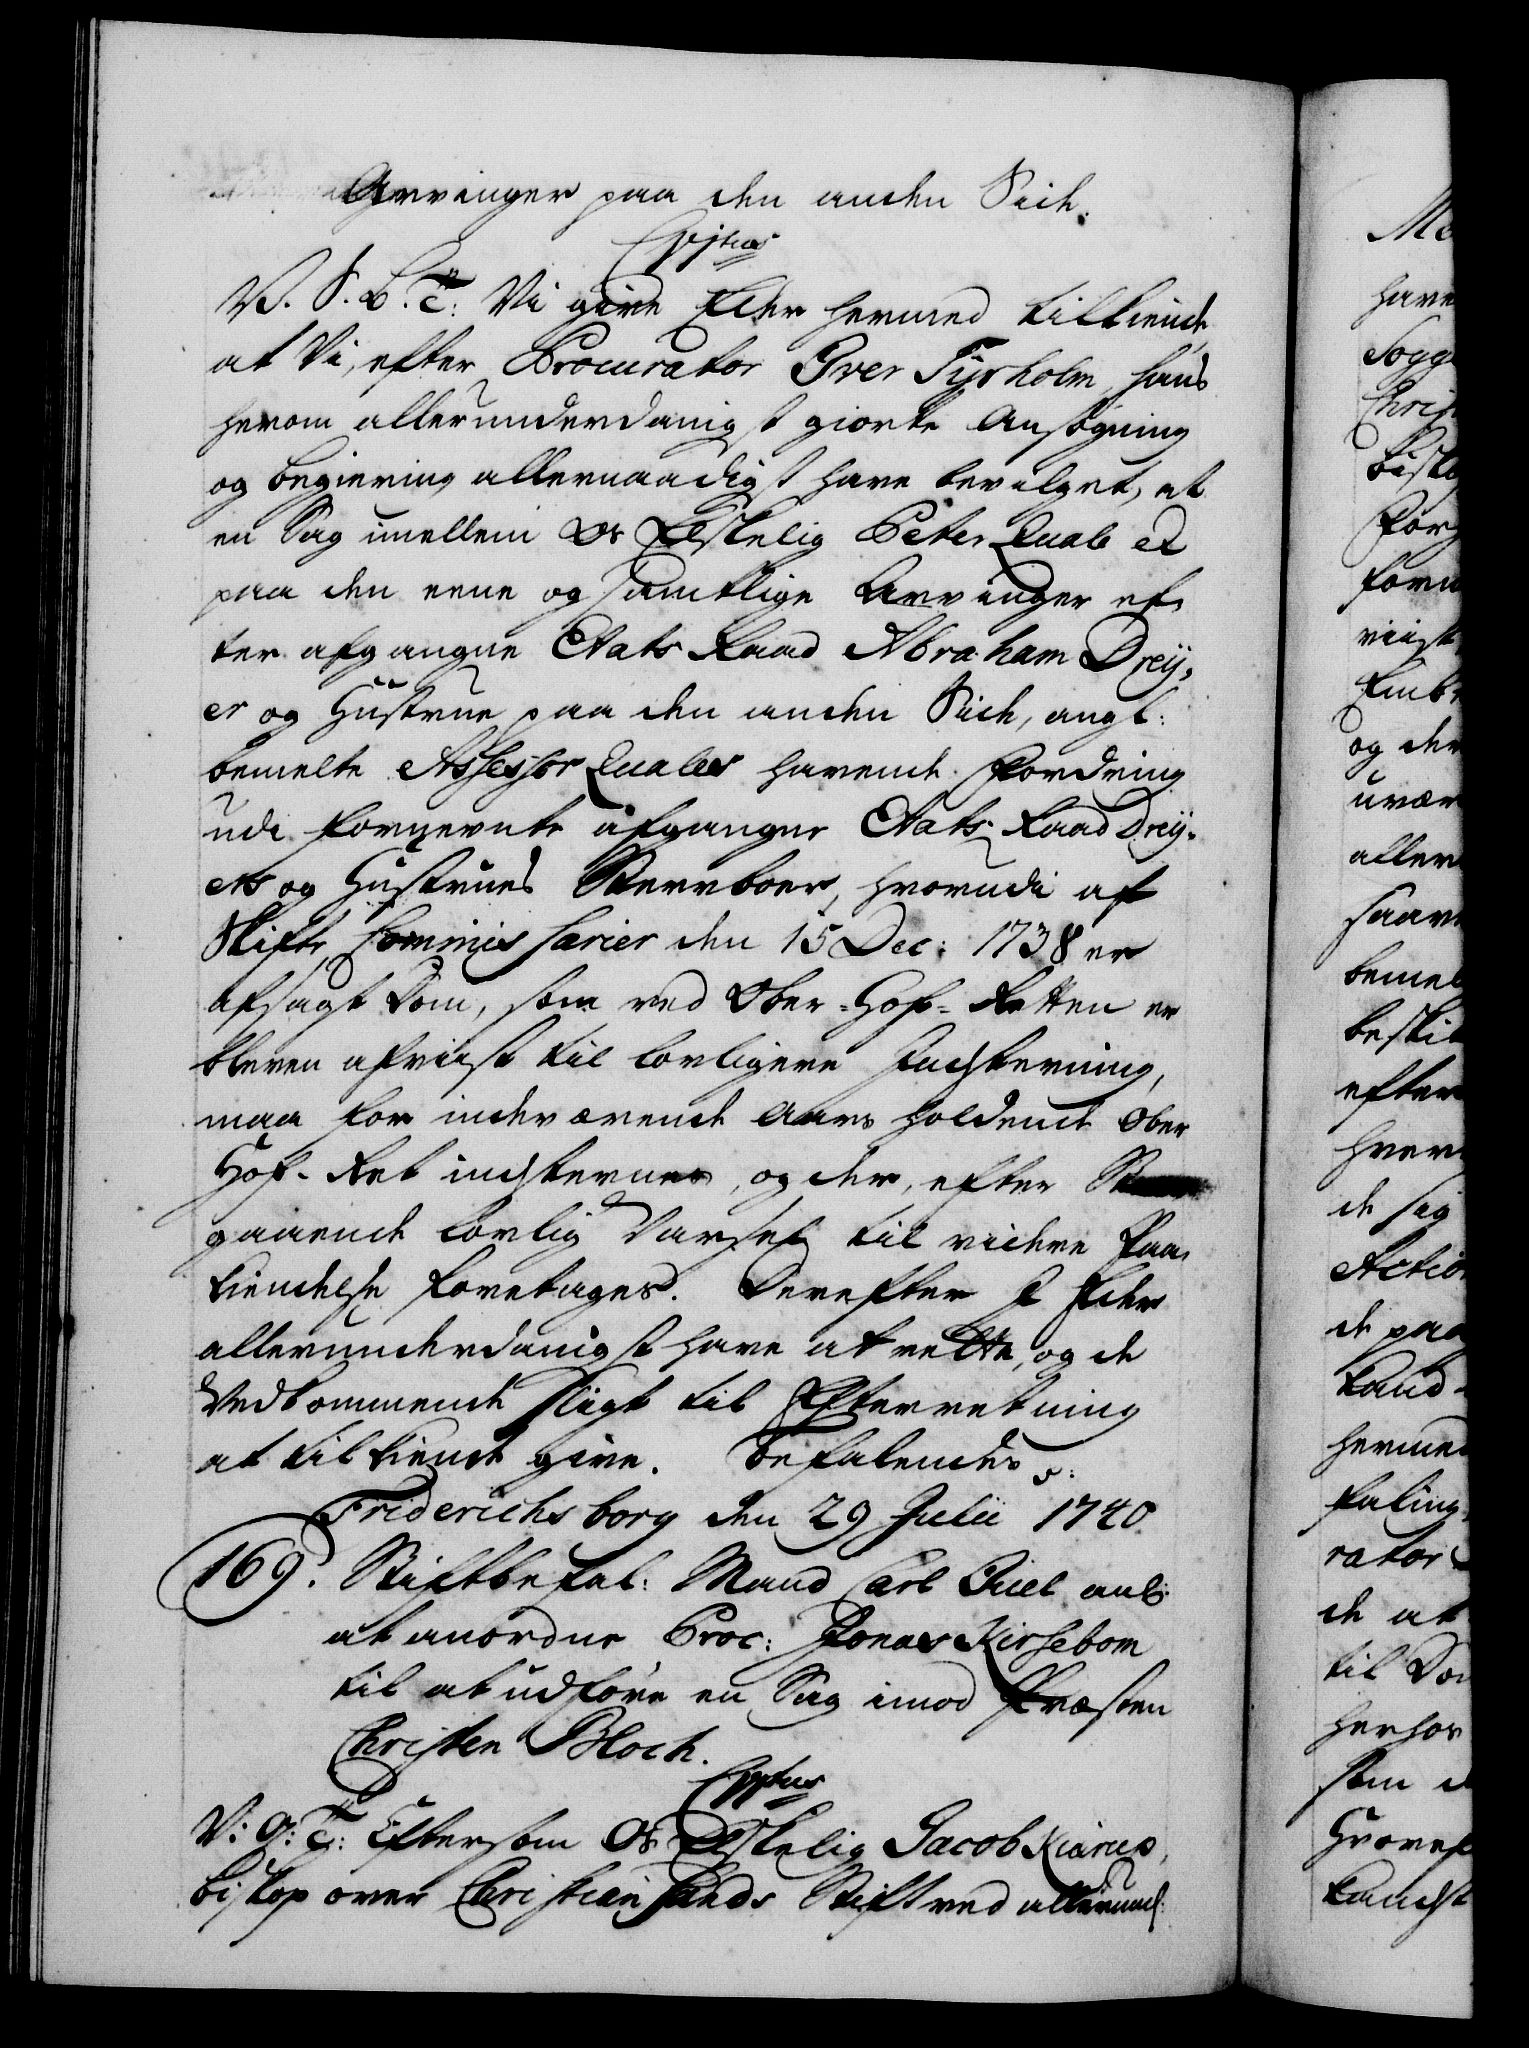 Arvinger paa den anden Side.
C5tus
V. S. B. T: Vi give Eder hermed tilkiende,
at Vi, efter Procurator Iver Tyrholm hans
herom allerunderdanigst giorte Ansøgning
og begiering allernaadigst have bevilget, at
en Sag imellem Os Elskelig Peter Quale et
paa den eene og samtlige Arvinger ef-
ter afgangne Etats Raad Abraham Dreÿ-
er og Hustrue paa den anden Side, angl:
bemelte Assessor Quales havende Fordring
udi fornevnte afgangne Etats Raad Dreÿ-
ers og Hustrues Sterboer, hvorudi af
Skifte Commissarier den 15 Dec: 1738 er
afsagt Dom, som ved Ober-Hof-Retten er
bleven afviist til lovligere Indstevning,
maa for indeværende Aars holdende Ober
Hof-Ret indstevnes, og der, efter
gaaende lovlig Varsel til videre Paa-
kiendelse foretages. Derefter I Eder
allerunderdanigst have at rette, og de
Vedkommende sligt til Efterretning
at tilkiende give. Befalendes
Friderichsborg den 29 Julii 1740
169. Stiftbefal: Mand Carl Juel anl:
at anordne Proc: Jonas Kirsebom
til at udføre en Sag imod Præsten
Christen Bloch.
V: G: T: Eftersom Os Elskelig Jacob Kiærup,
Biskop over Christiansands Stift ved allerund:
Me
have
Sogge
Christ
Bisko
For
forn
viist
Embe
og der
uvær
aller
saave
bemel
beskik
efter
hver
de sig
Actio
de paa
Land-
hermed
faling
rator
de at
til Do
herhos
som
Hvoref
Landst